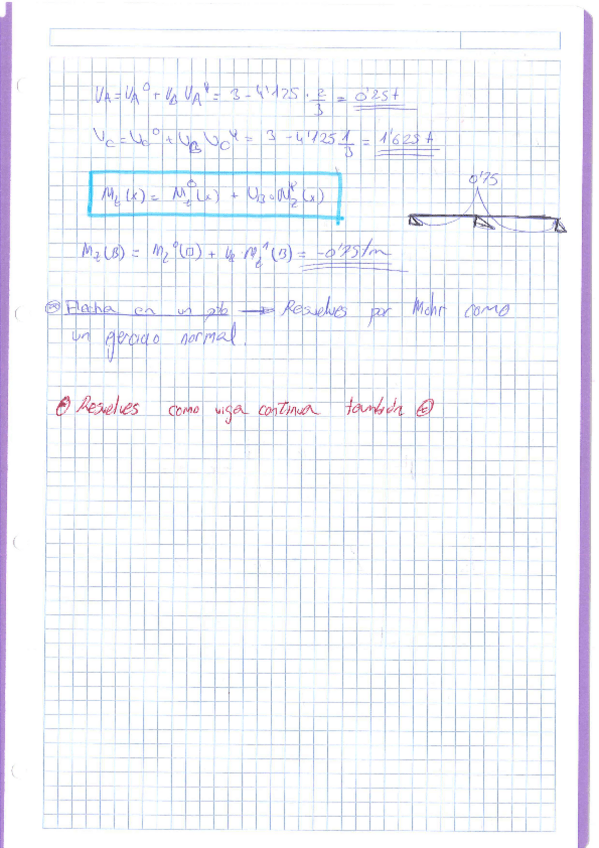 V_A = V_A^0 + V_B V_A^1 = 3 - 4'125 · 2/3 = 0'25 t
V_C = V_C^0 + V_B V_C^1 = 3 - 4'125 1/3 = 1'625 t
0'75
M_z(x) = M_z^0(x) + V_B · M_z^1(x)
M_z(B) = M_z^0(B) + V_B · M_z^1(B) = -0'75 tm
Flecha en un pto → Resuelves por Mohr como
un ejercicio normal.
Resuelves como viga continua también